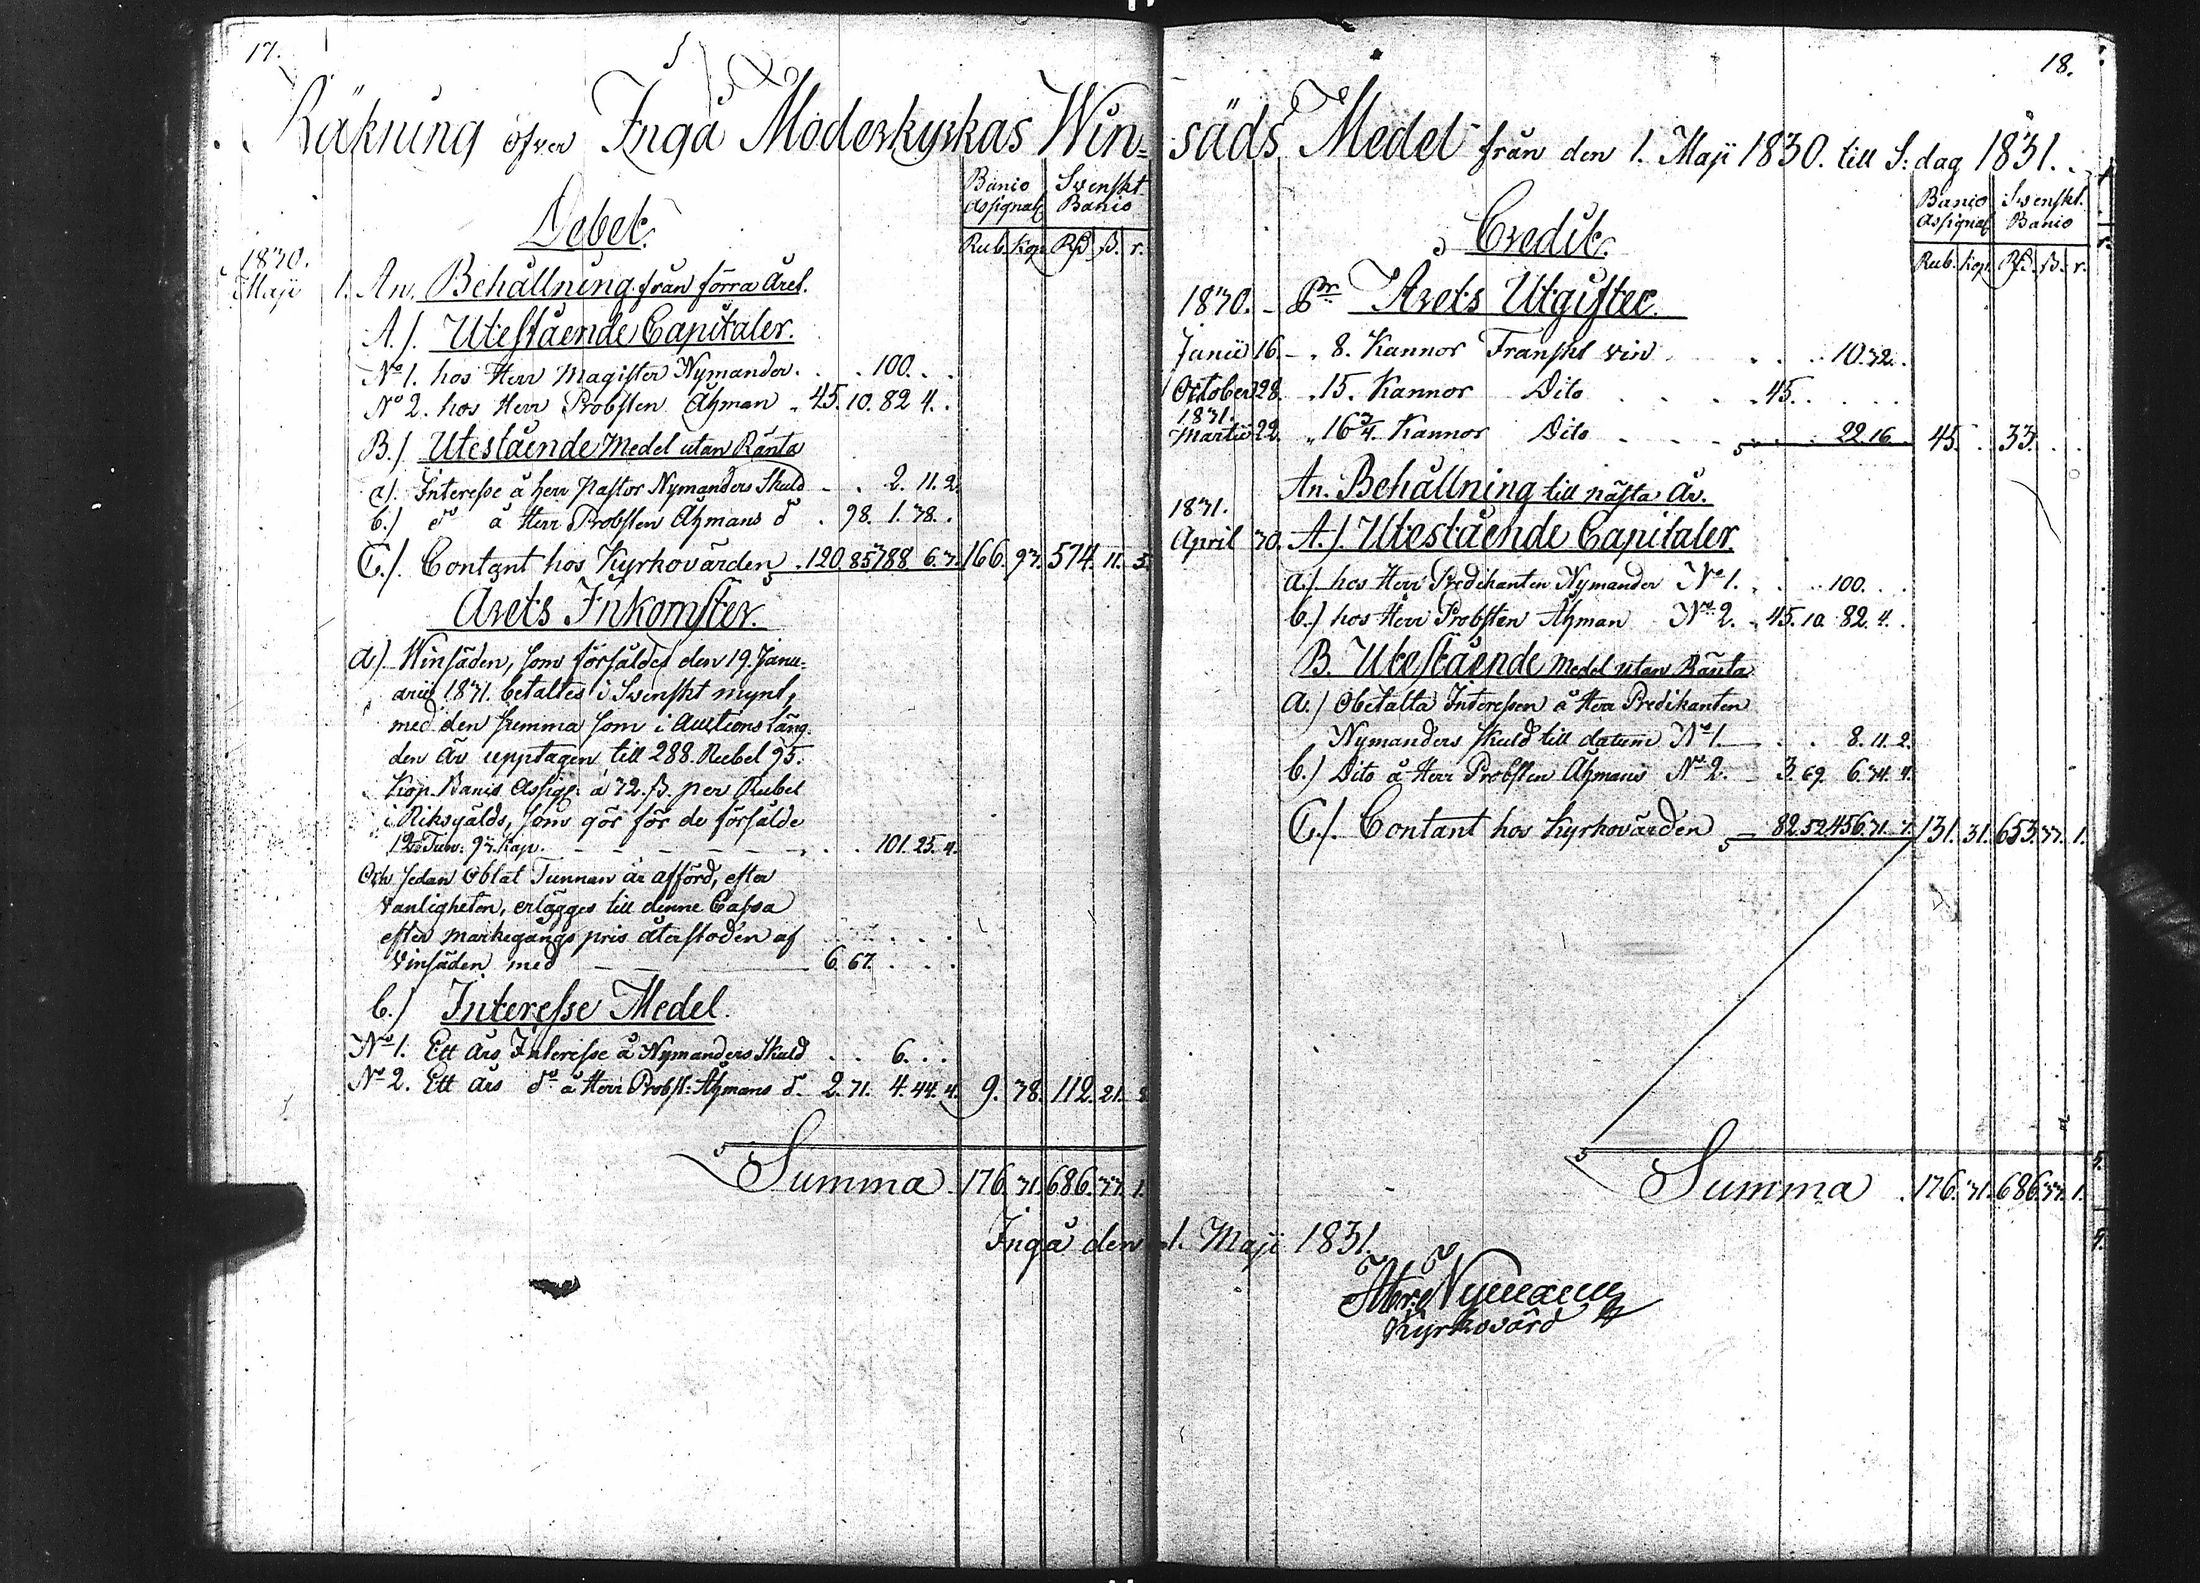 17.
Räkning öfver Ingå Moderkyrkas Win-
Debet.
Banco Assignat. Svenskt Banco
Rub. Kop. Rß. ß. r.
1830.
Maji 1. An. Behållning från förra Året.
A./. Utestående Capitaler.
No 1. hos Herr Magister Nymander. . . 100. . .
No 2. hos Herr Probsten Åhman . 45. 10. 82 4. .
B./. Utestående Medel utan Ränta
a/. Interesse å Herr Pastor Nymanders Skuld - . 2. 11. 2.
b./ do å Herr Probsten Åhmans do . 98. 1. 38. .
C./. Contant hos Kyrkovärden . 120. 85 388. 6. 3. 166. 93. 574. 11. 5.
Årets Inkomster.
a/. Winsäden, som försåldes den 19. Janu-
arii 1831. betaltes i Svenskt mynt,
med den summa som i Auctions läng-
den är upptagen till 288. Rubel 95.
Kop. Banco Assign: à 32. ß. per Rubel
i Riksgälds, som gör för de försålde
. . 101. 25. 4.
Och sedan Oblat Tunnan är afförd, efter
vanligheten, erlägges till denne Cassa
efter markegångs pris återstoden af
Vinsäden med 6. 67. . . .
b./ Interesse Medel.
No 1. Ett Års Interesse å Nymanders Skuld . . 6. . .
No 2. Ett Års do å Herr Probst: Åhmans do. 2. 71. 4. 44. 4. 9. 38. 112. 21. 8.
Summa . 176. 31. 686. 33. 1.
Ingå den
18.
säds Medel från den 1. Maji 1830. till S: dag 1831.
Credit.
Banco Assignat. Svenskt. Banco
Rub. Kop. Rß. ß. r.
1830. - Pr Årets Utgifter.
Junii 16. - . 8. Kannor Franskt vin . . . 10. 32. .
October 28. . 15. Kannor Dito . . . 45. . . . .
1831.
Martii 22. „ 16 3/4. Kannor Dito . . . 22. 16. 45. . 33. . .
An. Behållning till nästa År.
1831.
April 30. A./. Utestående Capitaler.
a./ hos Herr Predikanten Nymander No 1. . . 100. . .
b./ hos Herr Probsten Åhman No 2. . 45. 10. 82. 4. .
B. Utestående Medel utan Ränta
a./ Obetalta Interessen å Herr Predikanten
Nymanders skuld till datum No 1. . . 8. 11. 2.
b./ Dito å Herr Probsten Åhmans No 2. - 3. 69. 6. 34. 4.
C./. Contant hos Kyrkovärden 82. 52 456. 31. 7. 131. 31. 653. 33. 1.
Summa . 176. 31. 686. 33. 1.
1. Maji 1831.
Nyman
Kyrkovärd